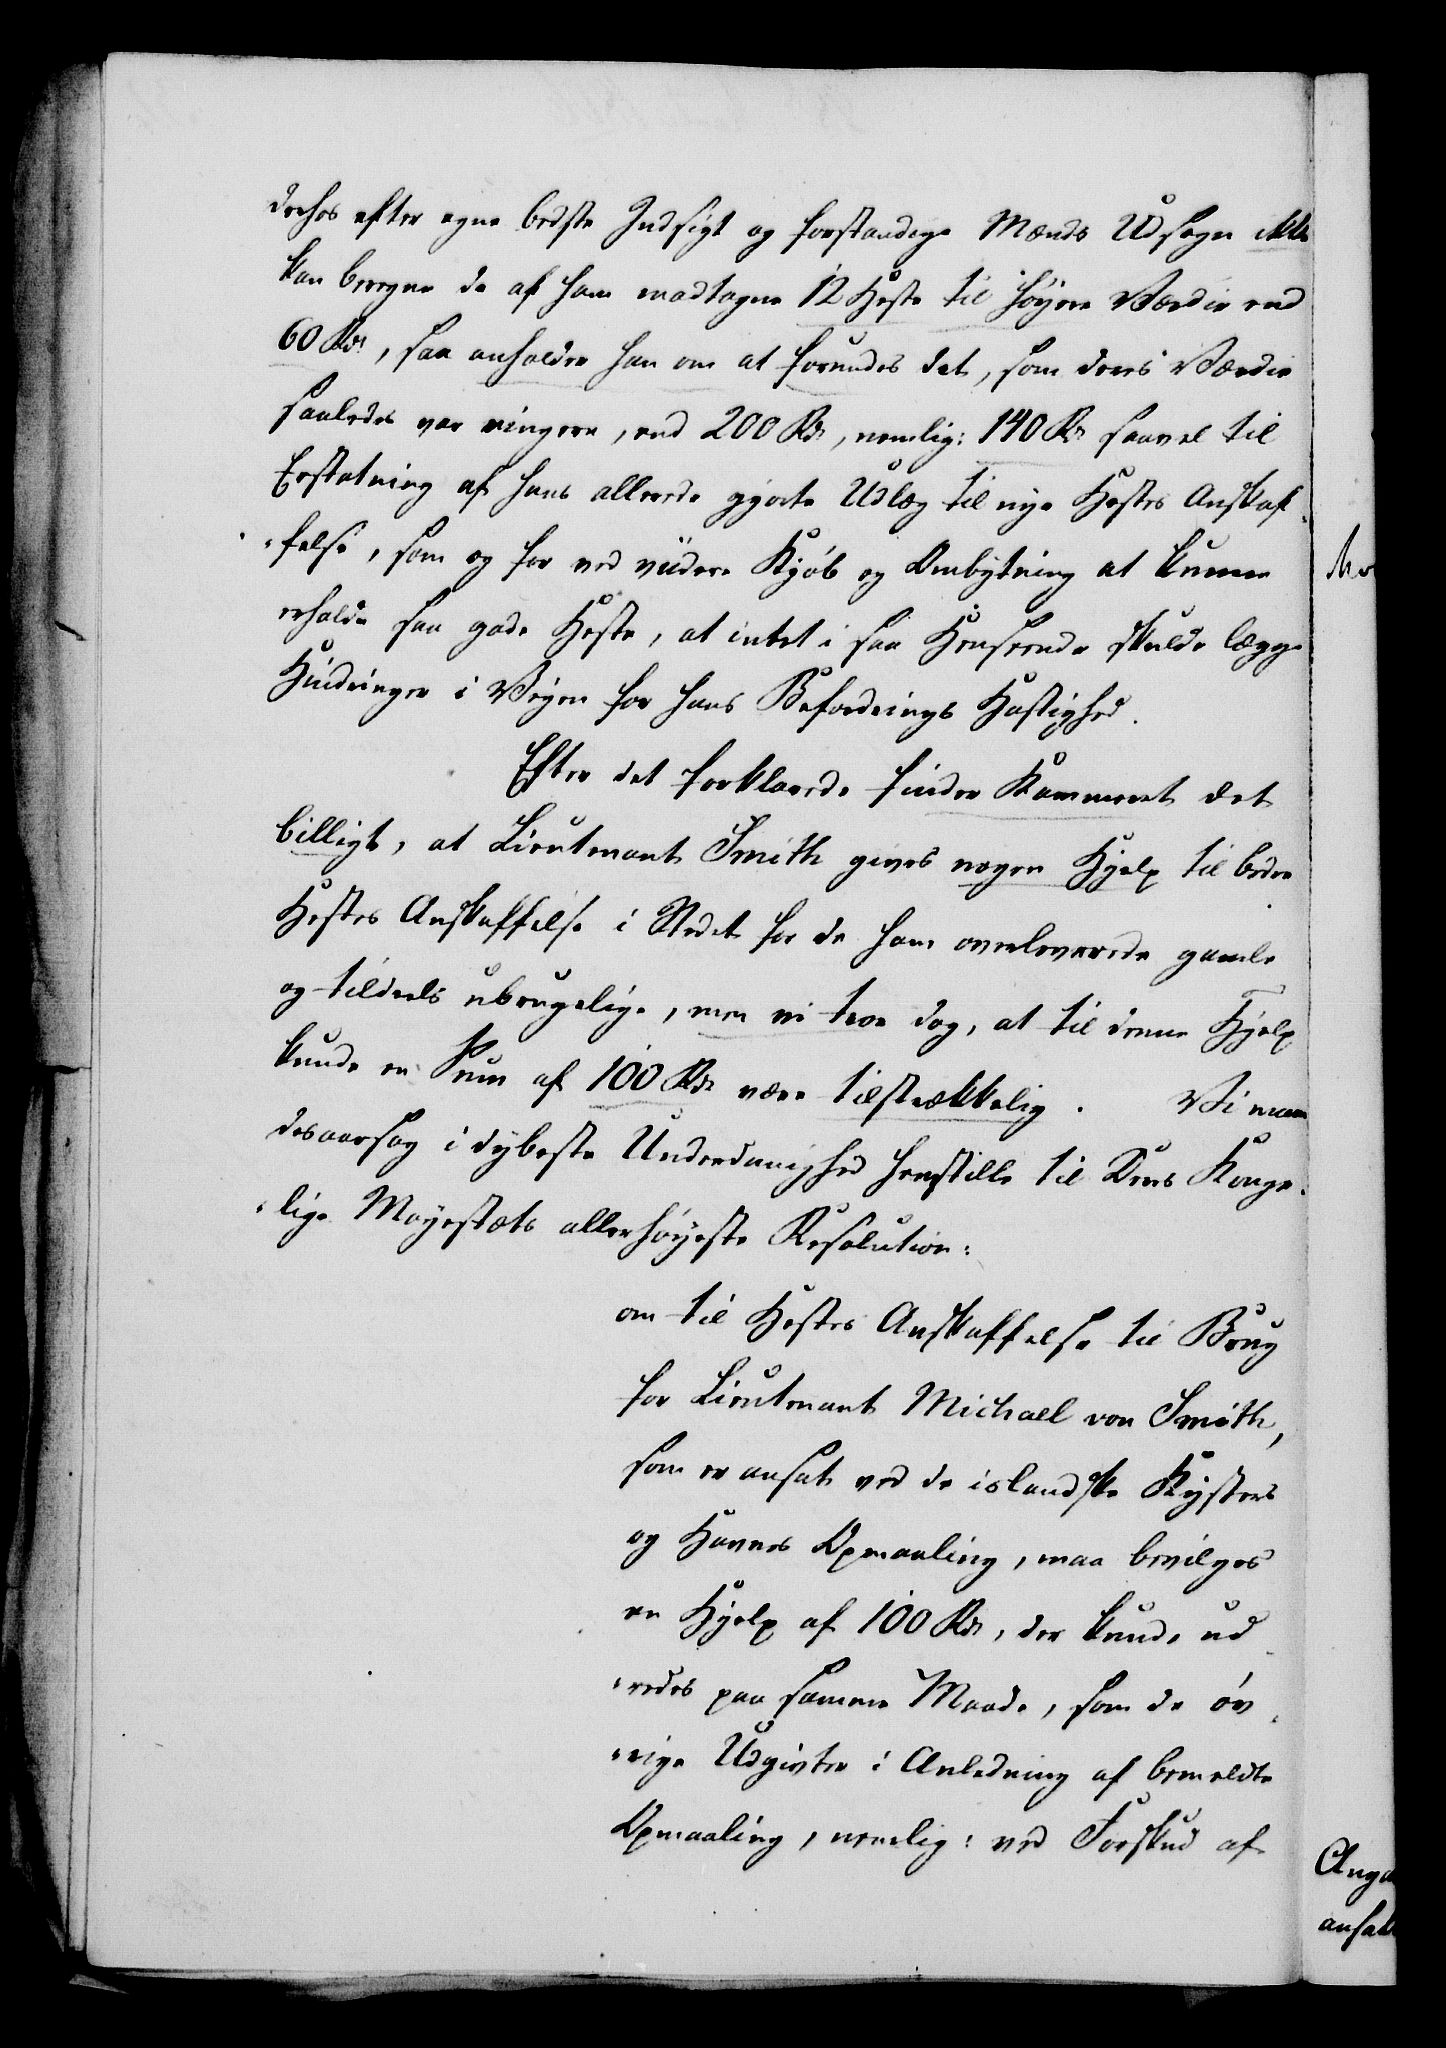 derhos efter egne bedste Indsigt og forstandige Mænds Udsagn ikke
kan beregne de af ham modtagne 12 Heste til höyere Værdie end
60 Rd, saa anholder han om at forundes det, som deres Værdie
saaledes var ringere, end 200 Rd, nemlig: 140 Rd saavel til
Erstatning af hans allerede gjorte Udlæg til nye Hestes Anskaf-
felse, som og for ved viidere Kjöb og Ombytning at kunne
erholde saa gode Heste, at intet i saa Henseende skulde lægge
Hindringer i Veyen for hans Befordrings Hastighed.
Efter det forklarede finder Kammeret det
billigt, at Lieutenant Smith gives nogen Hjelp til bedre
Hestes Anskaffelse i Stedet for de ham overleverede gamle
og tildeels ubrugelige, men vi troe dog, at til denne Hjelp
kunde en Sum af 100 Rd være tilstrækkelig. Vi maae
desaarsag i dybeste Underdanighed henstille til Deres Konge-
lige Mayestæts allerhöyeste Resolution:
om til Hestes Anskaffelse til Brug
for Lieutenant Michael von Smith,
som er ansat ved de islandske Kysters
og Havnes Opmaaling, maa bevilges
en Hjelp af 100 Rd, der kunde ud-
redes paa samme Maade, som de öv-
rige Udgivter i Anledning af bemeldte
Opmaaling, nemlig: ved Forskud af